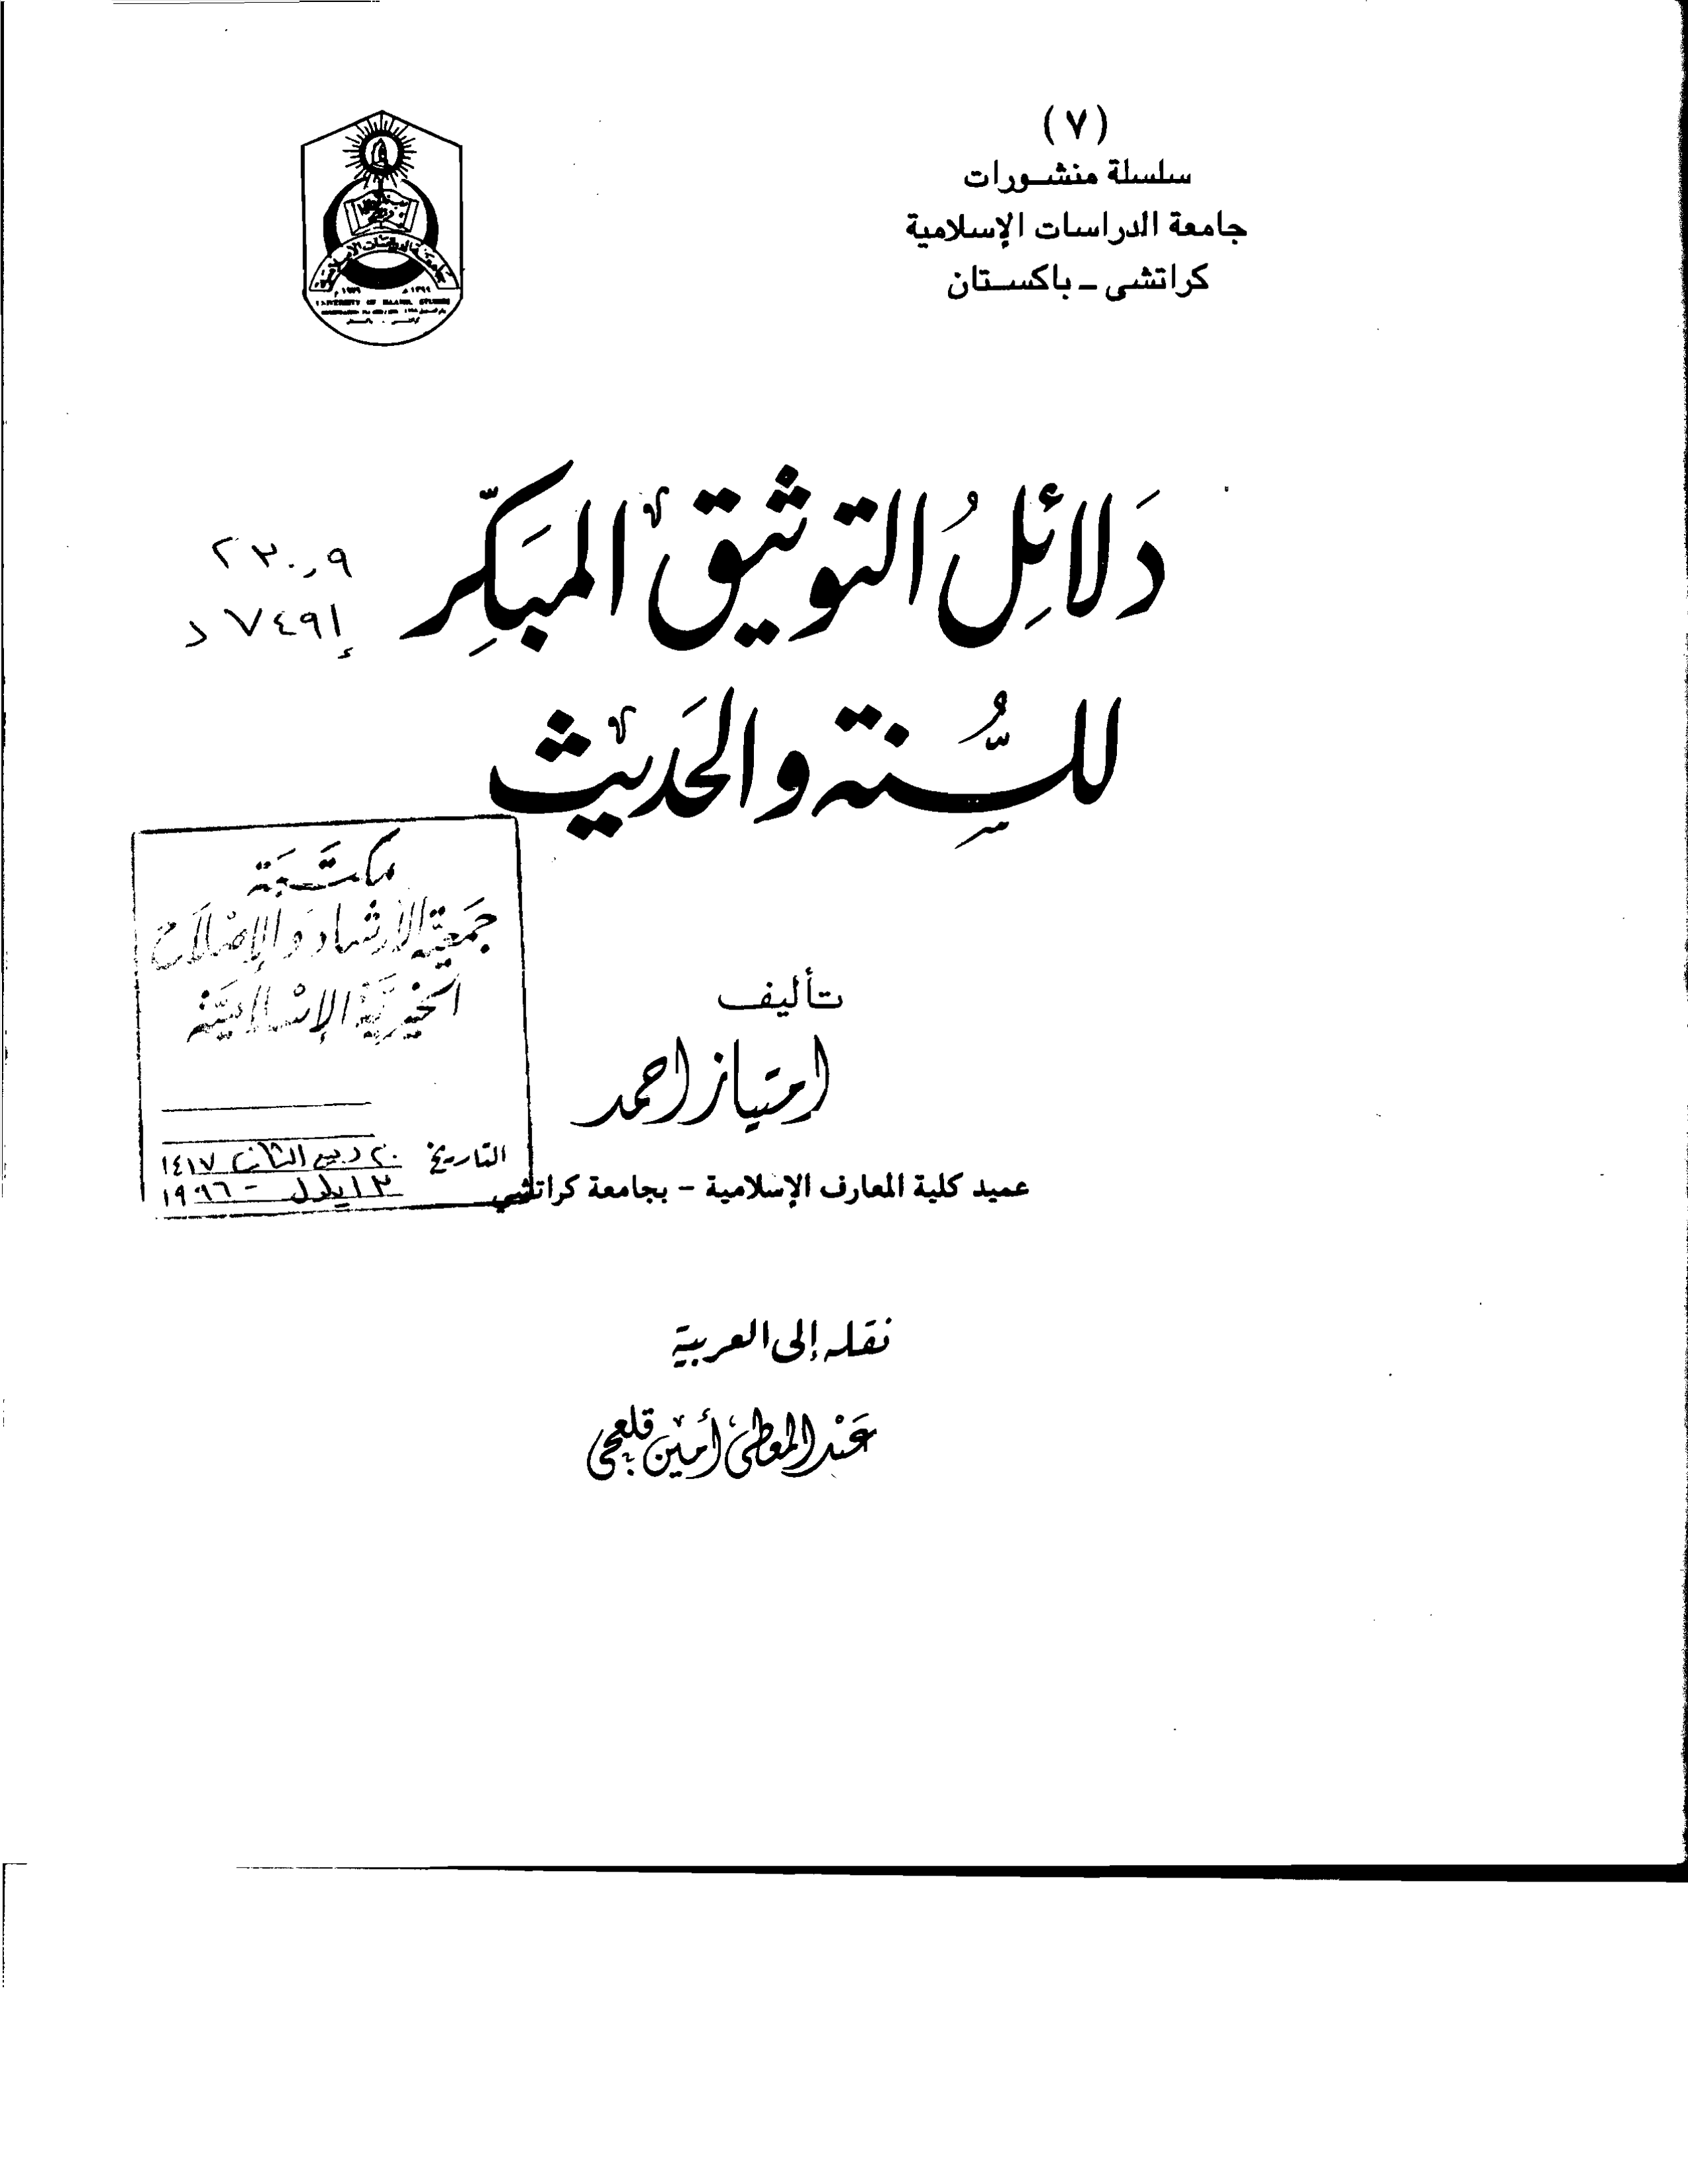 (٧)
سلسلة منشورات
جامعة الدراسات الإسلامية
كراتشى - باكستان
UNIVERSITY OF ISLAMIC STUDIES
دَلائِلُ التوثيق المبَكِّر
للسُّنِّتہ والحَديث
٢٣٠,٩
إ٧٤٩ د
مكتَبَة
جَمعيَّة الارشاد وَالإصْلَاح
الخيريَّة الإسْلاميَّة
التاريخ ٢٠ ربيع الثاني ١٤١٧
٣ ايلول - ١٩٩٦
تأليف
امتياز احمد
عميد كلية المعارف الإسلامية - بجامعة كراتشي
نقله إلى العربية
عَبْد المعطى أمين قلعجى